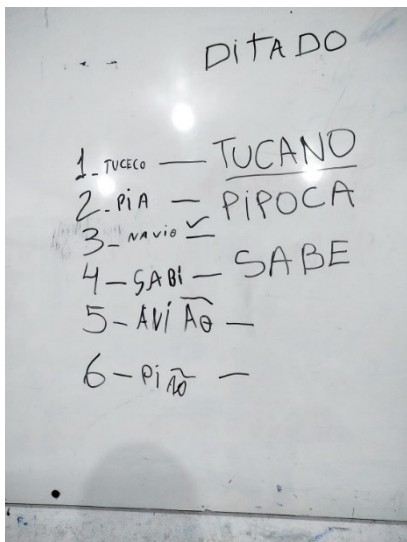 DITADO
1-TUCECO — TUCANO
2-PIA — PIPOCA
3-NAVIO ✓ —
4-SABI — SABE
5-AVIÃO —
6-PIÃO —